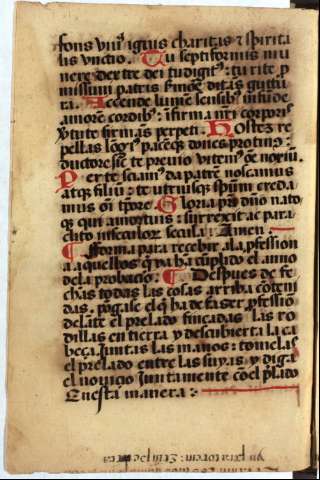 fons viuꝰ ignis charitas ⁊ spirita
lis vnctio. Tu septiformis mu
nere dextre dei tu digitꝰ: tu rite ꝓ
missum patris sermōe ditās guttu
ra. Accende lumē sensibꝰ infūde
amorē cordibꝰ: ifirma nr̄i corporis
virtute firmās perpeti. Hostē re
pellas lōgiꝰ pacēqꝫ dones protinꝰ:
ductore sic te preuio vitemꝰ oē noxiū.
Per te sciamꝰ da patrē noscamus
atqꝫ filiū: te vtriusqꝫ spūm creda
mus oī tpore. Gloria pr̄i dn̄o nato
qꝫ qui a mortuis: surrexit ac para
clito in seculoꝝ secula: Amen:
forma para recebir a la ꝓfession
a aquellos q̄ ya hā cūplido el anno
de la probaciō: Despues de fe
chas todas las cosas arriba cōteni
das. pōgase el q̄ ha de faser ꝓfessiō
delāte el prelado fincadas las ro
dillas en tierra y descubierta la ca
beça Juntas las manos: tomelas
el prelado entre las suyas. y diga
el nouiçio Juntamente cō el ꝑlado
en esta manera: